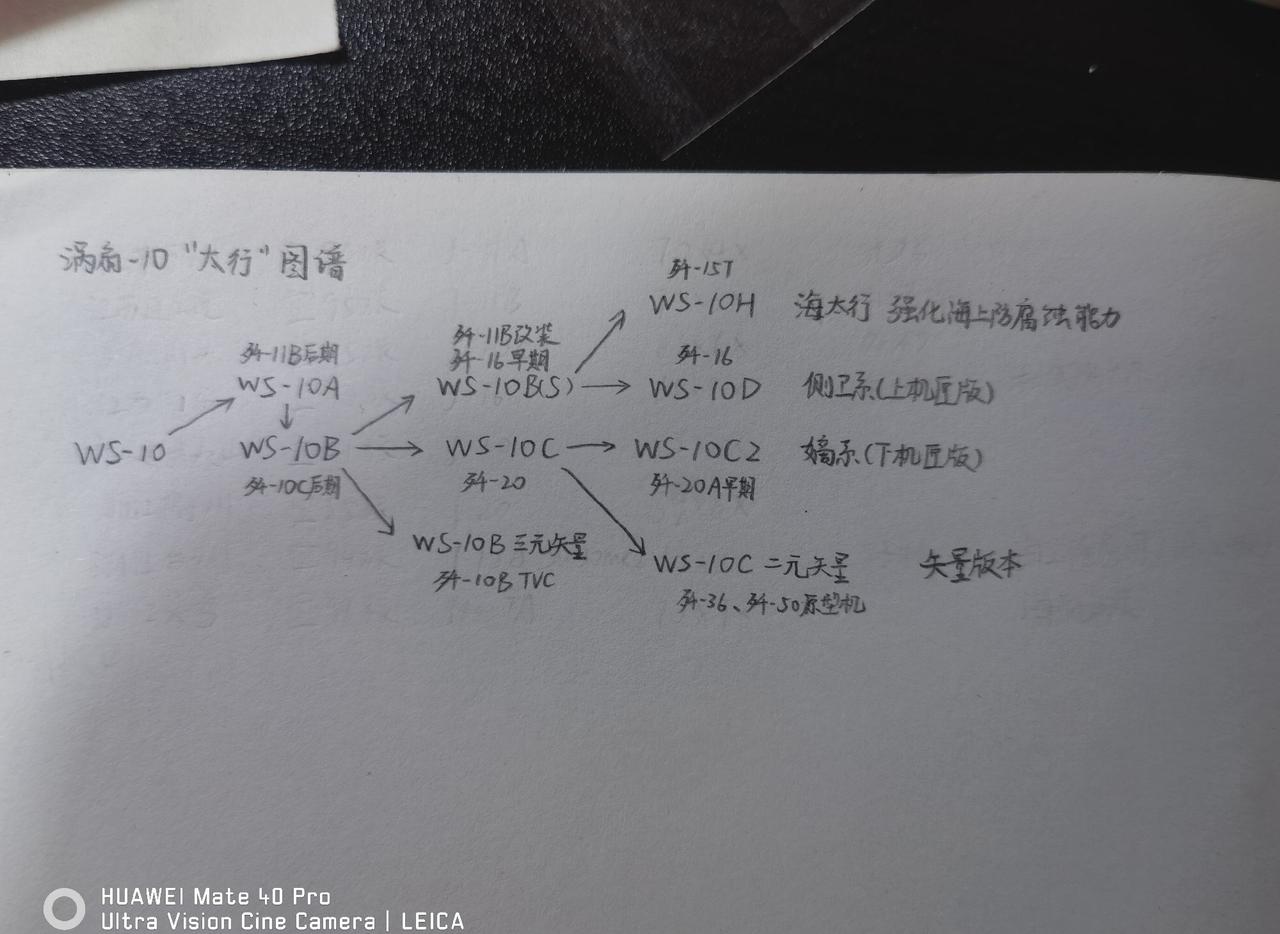 涡扇-10 "太行" 图谱
歼-15T
WS-10H 海太行 强化海上防腐蚀能力
歼-11B改装
歼-11B后期 歼-16早期 歼-16
WS-10A WS-10B(S) WS-10D 侧卫系(上机匣版)
WS-10 WS-10B WS-10C WS-10C2 嫡系(下机匣版)
歼-10C后期 歼-20 歼-20A早期
WS-10B 三元矢量 WS-10C 二元矢量 矢量版本
歼-10B TVC 歼-36、歼-50原型机
HUAWEI Mate 40 Pro
Ultra Vision Cine Camera | LEICA